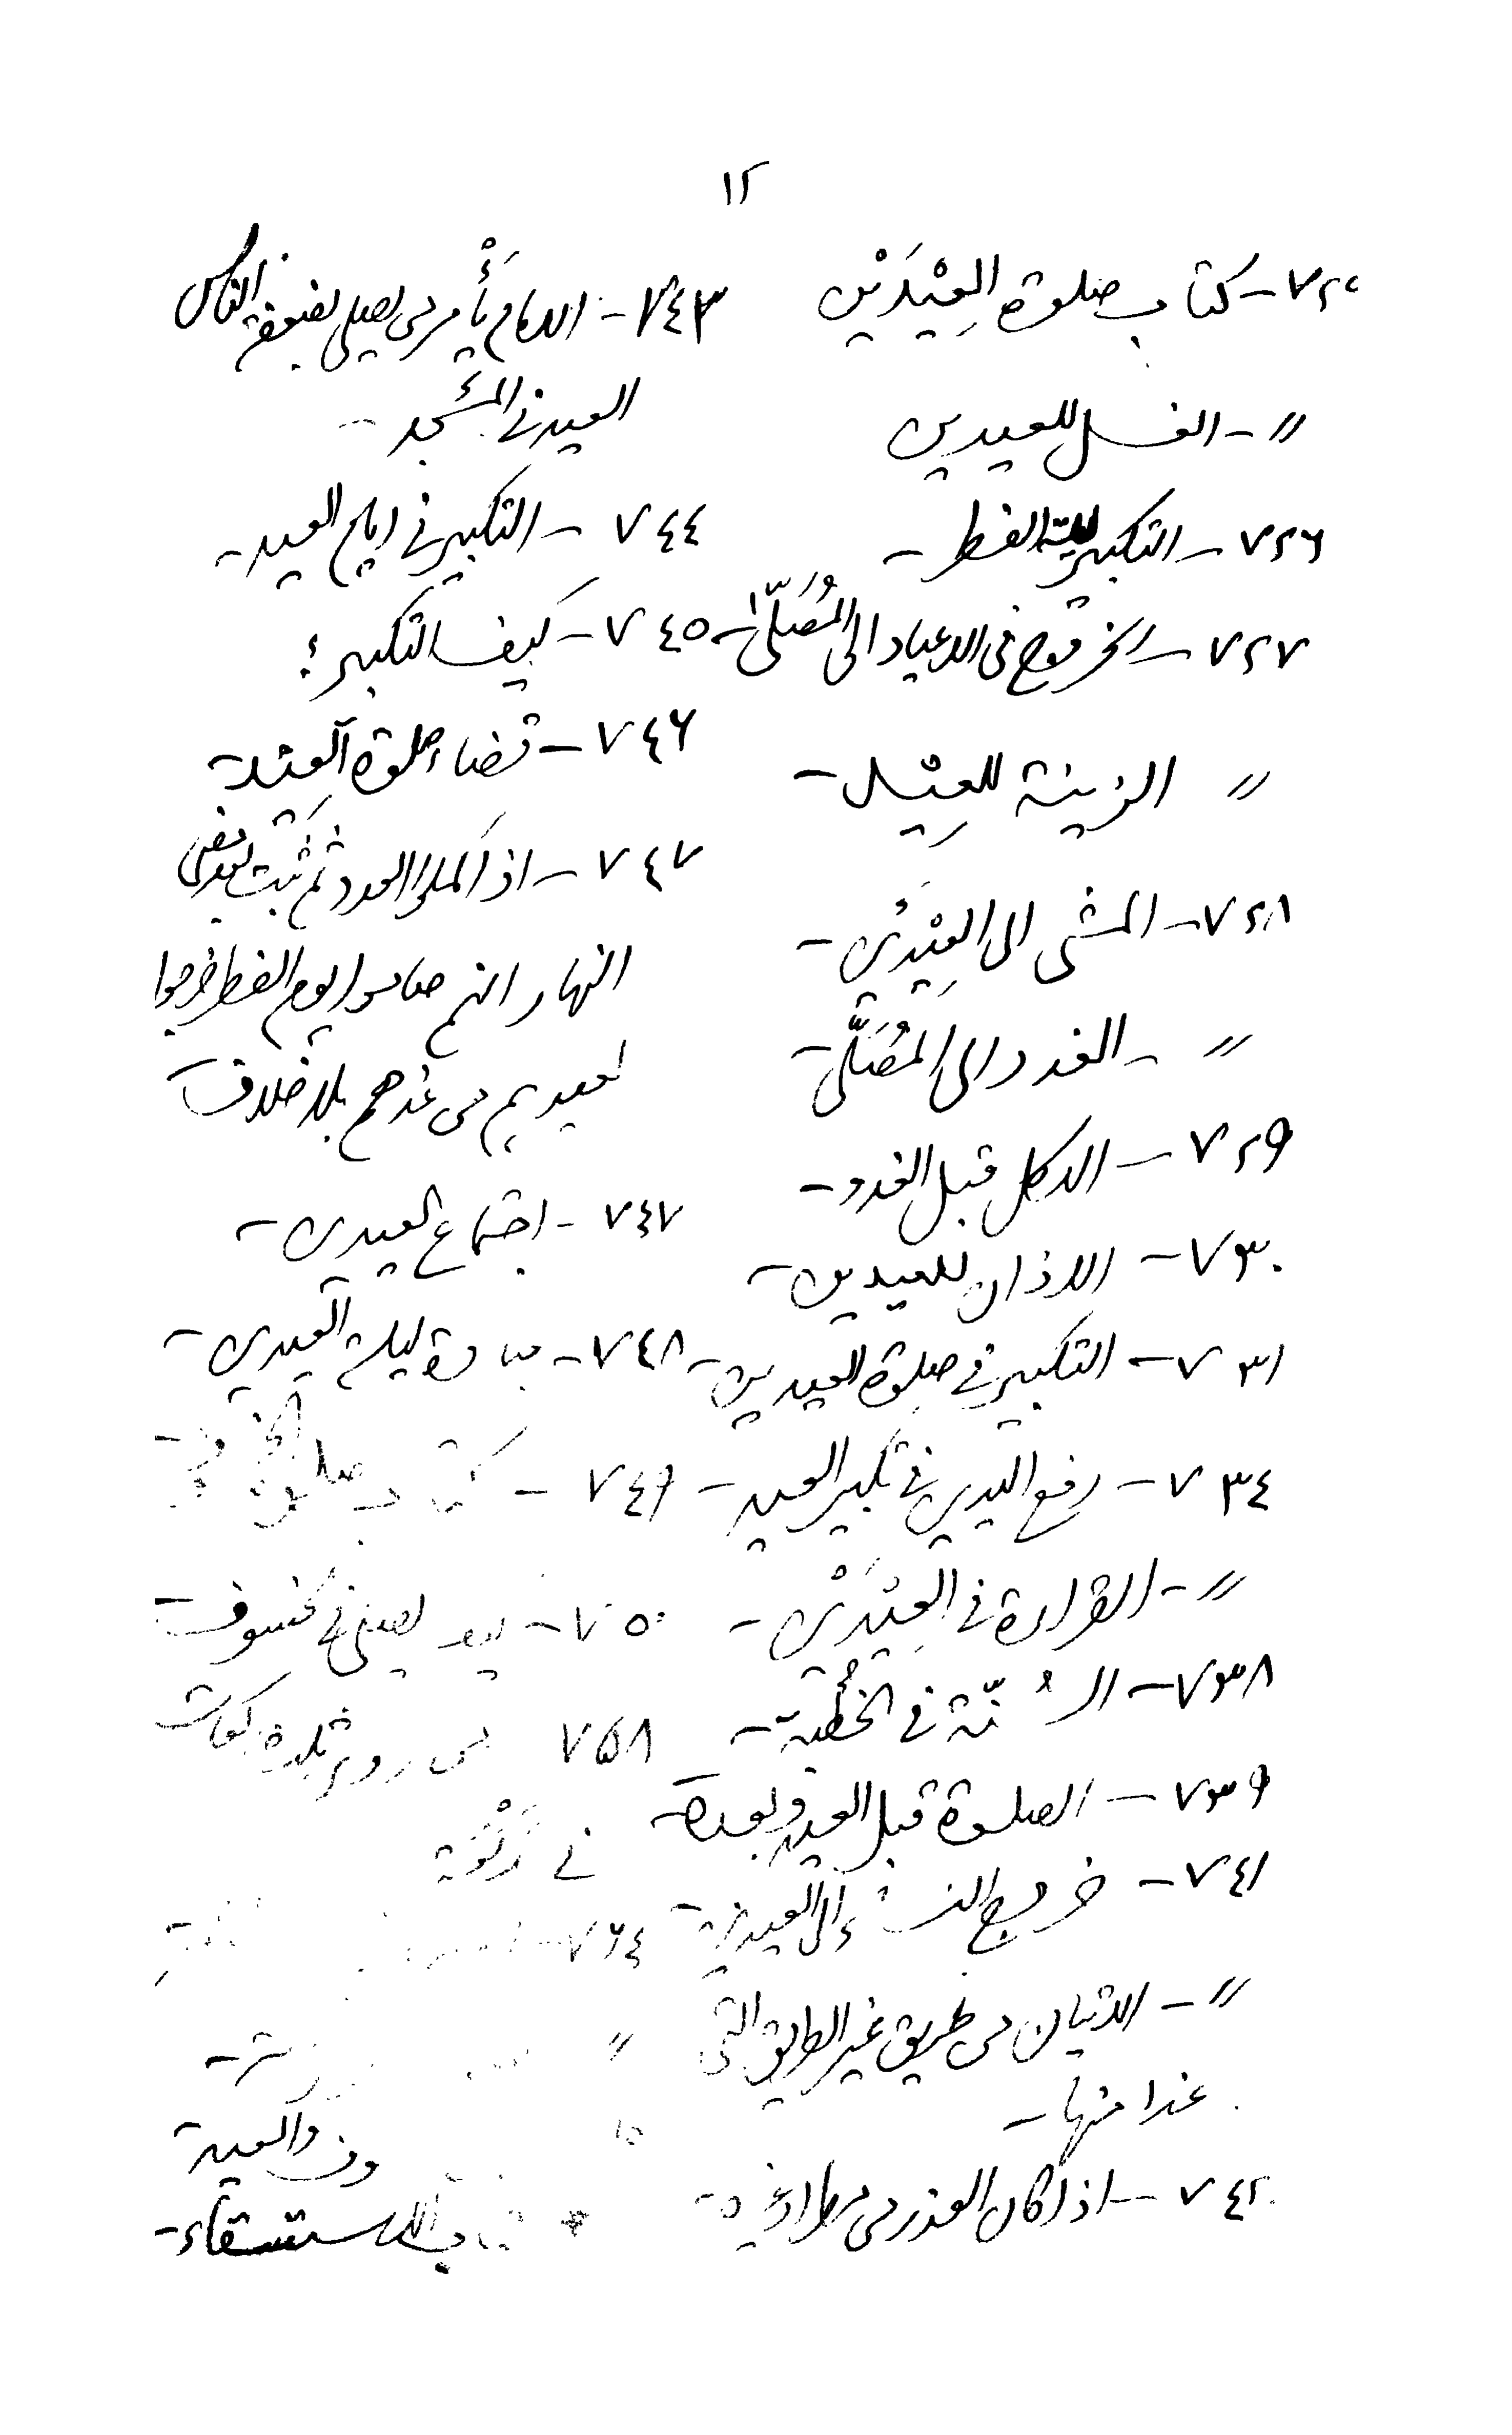 ١٢
٧٢٥- كتاب صلوة العِيْدَيْن
〃- الغسل للعيدين
٧٢٦- التكبير ليلة الفطر-
٧٢٧- الخروج فى الاعياد الى المُصَلّىٰ-
〃 الزينة للعِيْد-
٧٢٨- المشى الى العِيْدَيْن-
〃- الغدو الى المُصَلَّى-
٧٢٩- الاكل قبل الغدو-
٧٣٠- الاذان للعيدين-
٧٣١- التكبير فى صلوة العيدين-
٧٣٤- رفع اليدين فى تكبير العيد-
〃- القراءة فى العِيْدَيْن-
٧٣٨- السُّنّة فى الخُطْبة-
٧٣٩- الصلوة قبل العيد وبعده-
٧٤١- خروج النساء إلى العيدين-
〃- الاتيان من طريق غير الطريق التى
غدا منها-
٧٤٢- اذا كان العذر من مطر او غيره-
٧٤٣- الامام يَأْمر من يصلى بضعفة الناس
العيد فى المسجد-
٧٤٤- التكبير فى ايام العيد-
٧٤٥- كيف التكبير؟
٧٤٦- قضاء صلوة العيد-
٧٤٧- اذا اكملوا العدد ثم ثبت بعد مضى
النهار انهم صاموا يوم الفطر خرجوا
لعيدهم من غدهم بلا خلاف-
٧٤٧- اجتماع العيدين-
٧٤٨- عبادة ليلة العيدين-
٧٤٩- كتاب صلوة
٧٥٠- كيف يصلى فى الخسوف-
٧٥٨ من روى ثلاث ركعات
فى رَكْعَة
٧٦٤-
〃
والعيد-
الاستسقاء-